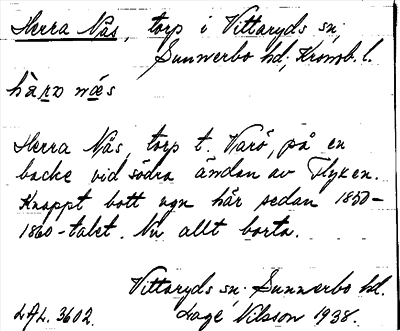 Herra Nås, torp i Vittaryds sn;
Sunnerbo hd; Kronob. l.
hàrn nǽs
Herra Nås, torp t. Varö, på en
backe vid södra ändan av Flyken.
Knappt bott ngn här sedan 1850-
1860-talet. Nu allt borta.
Vittaryds sn. Sunnerbo hd.
LAL. 3602. Lage Nilsson 1938.